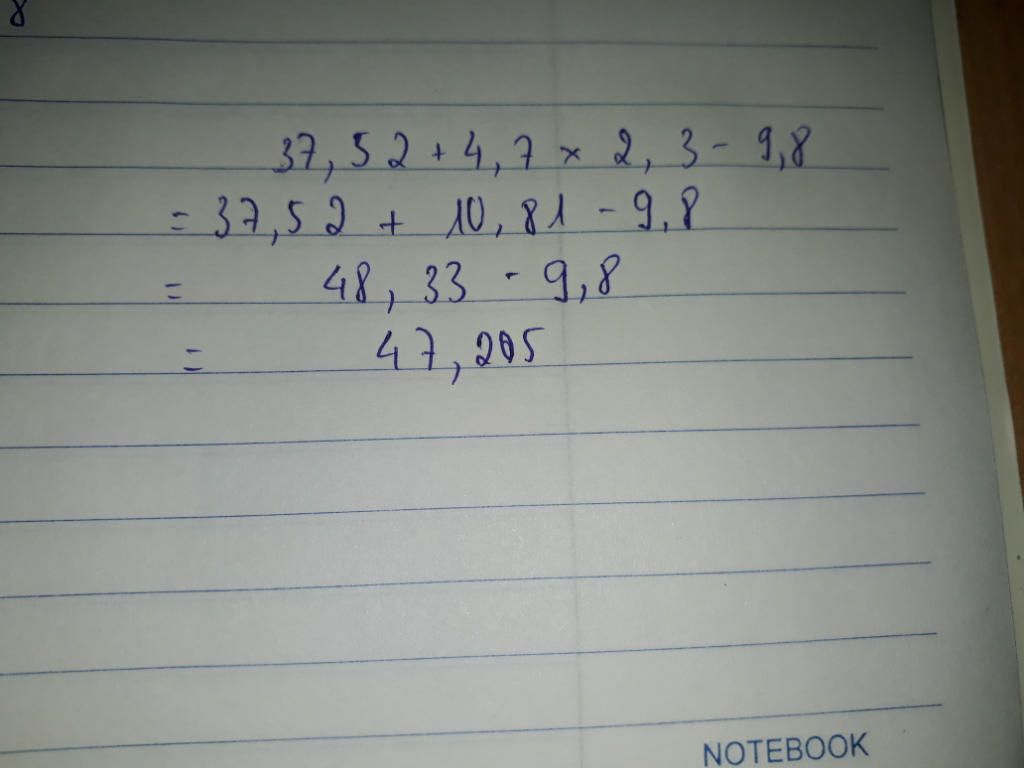 8
37,52 + 4,7 × 2,3 - 9,8
= 37,52 + 10,81 - 9,8
= 48,33 - 9,8
= 47,205
NOTEBOOK